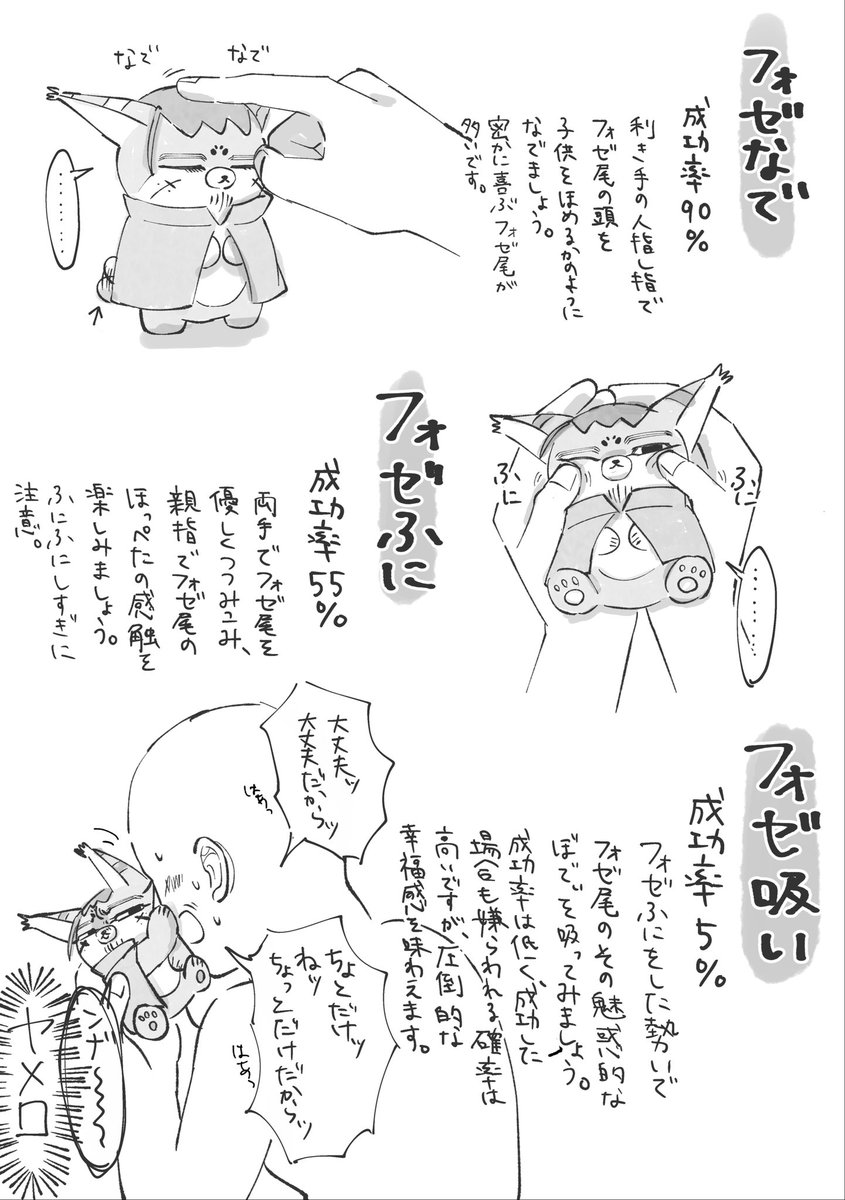 フォゼなで
成功率90%
利き手の人指し指で
フォゼ尾の頭を
子供をほめるかのように
なでましょう。
密かに喜ぶフォゼ尾が
多いです。
なで
なで
……
フォゼふに
成功率55%
両手でフォゼ尾を
優しくつつみこみ、
親指でフォゼ尾の
ほっぺたの感触を
楽しみましょう。
ふにふにしすぎに
注意。
ふに
ふに
………
フォゼ吸い
成功率5%
フォゼふにをした勢いで
フォゼ尾のその魅惑的な
ぼでぃを吸ってみましょう。
成功率は低く、成功した
場合も嫌われる確率は
高いですが、圧倒的な
幸福感を味わえます。
大丈夫ッ
大丈夫だからッ
はあっ
ちょとだけッ
ねッ
ちょっとだけだからッ
はあっ
ンナ〜〜〜
ヤメロ